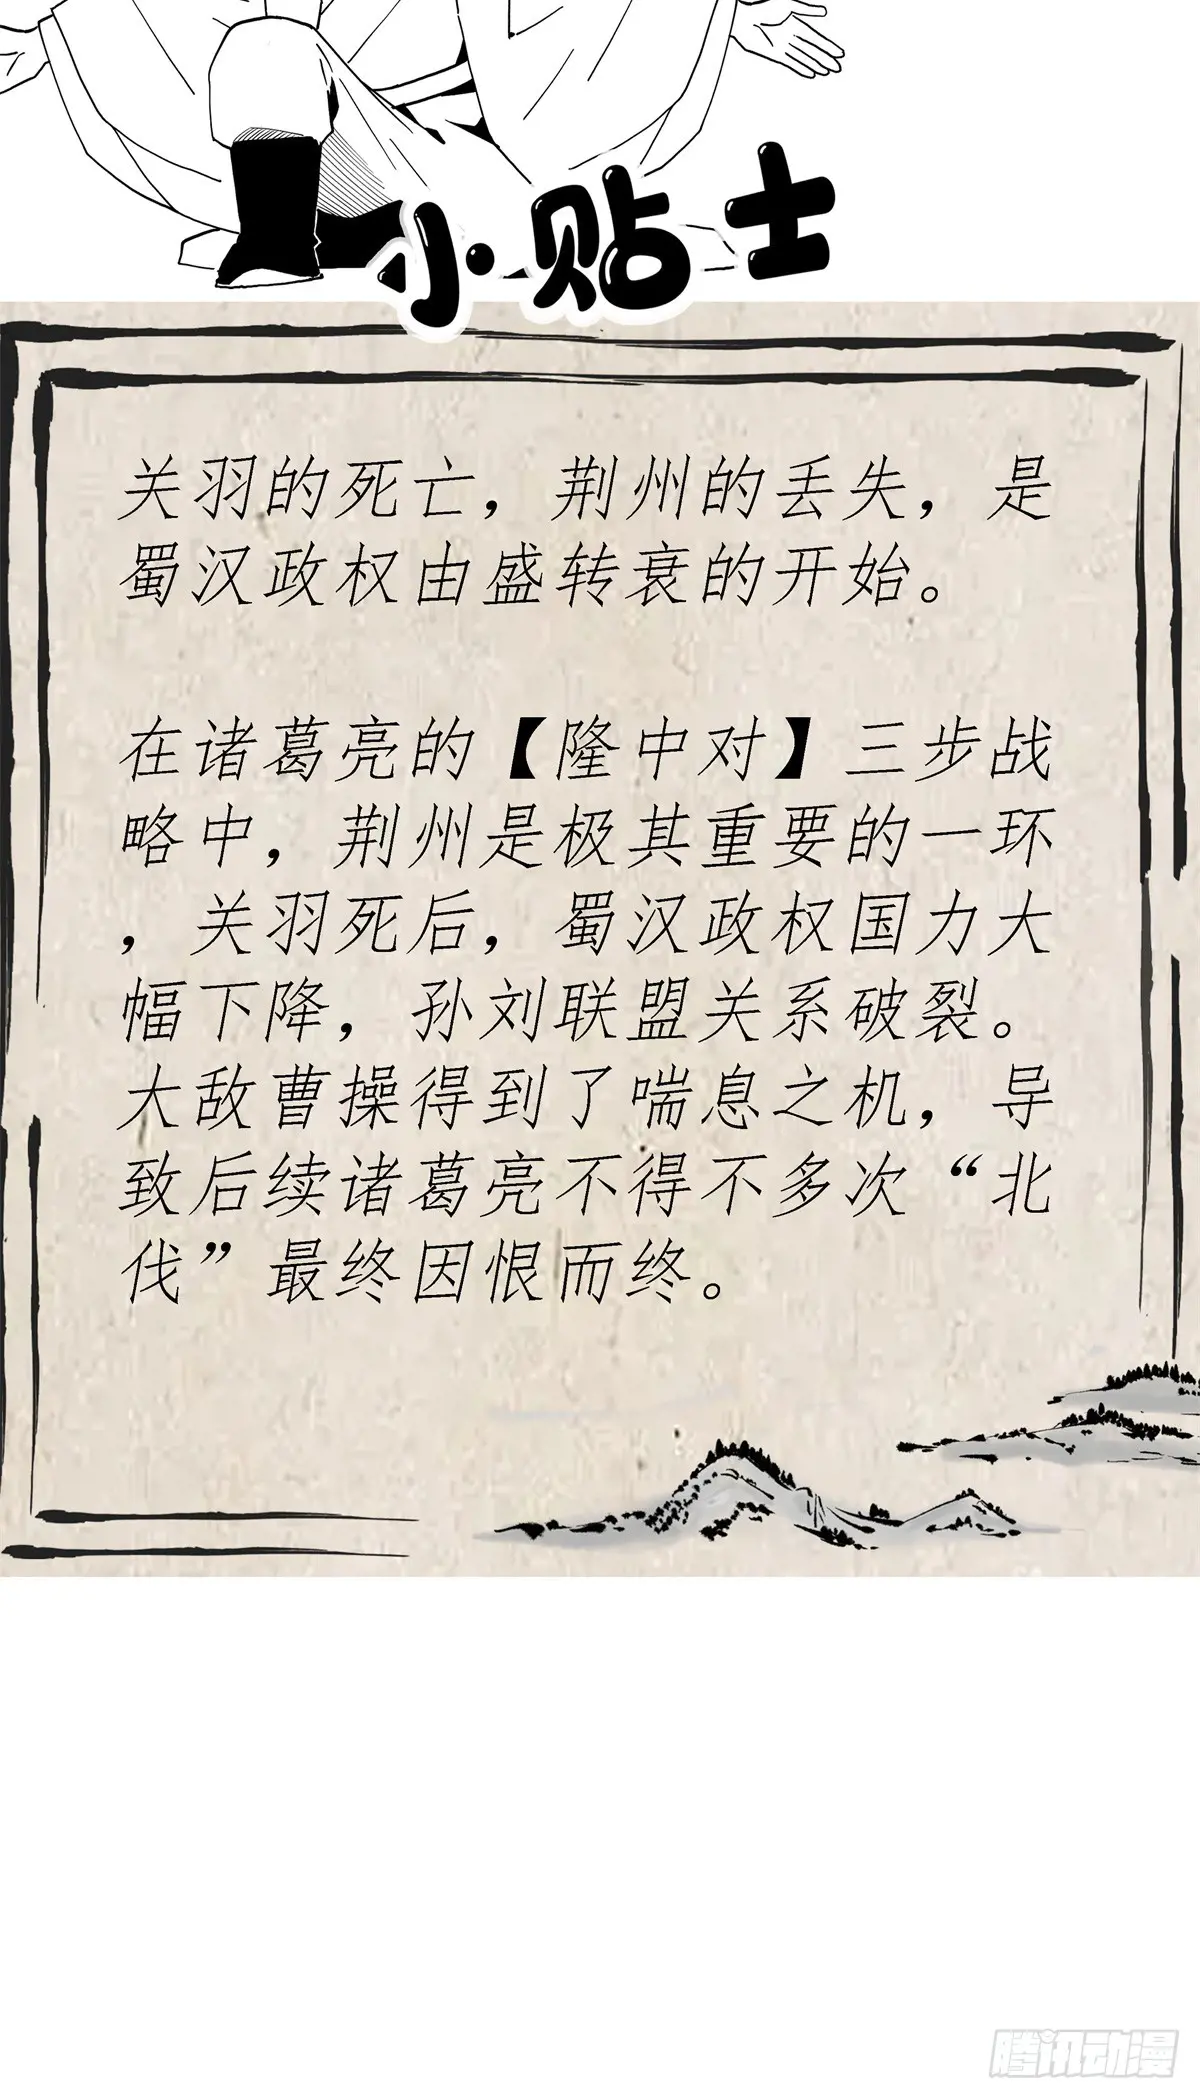 小贴士
关羽的死亡，荆州的丢失，是
蜀汉政权由盛转衰的开始。
在诸葛亮的【隆中对】三步战
略中，荆州是极其重要的一环
，关羽死后，蜀汉政权国力大
幅下降，孙刘联盟关系破裂。
大敌曹操得到了喘息之机，导
致后续诸葛亮不得不多次“北
伐”最终因恨而终。
腾讯动漫